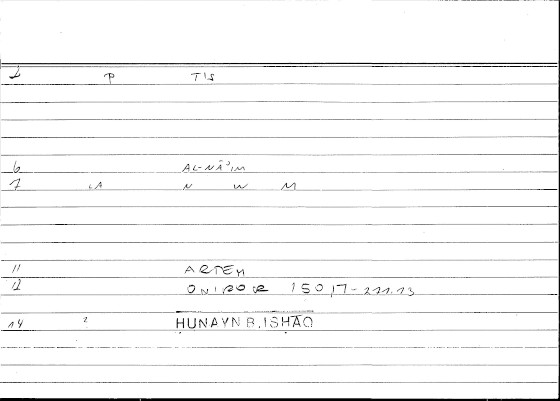 1 P T'S
6 AL-NĀ'IM
7 LA N W M
11 ARTEM
12 ONIROCR 150,17-211.13
14 ? ḤUNAYN B. ISḤĀQ